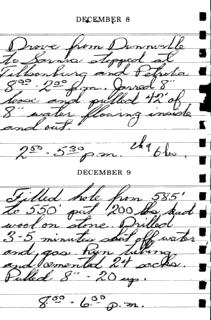 DECEMBER 8
Drove from Dunnville
to Sarnia stopped at
Tillsonburg and Petrolia
8:00 - 2:00 p.m. Jarred 8"
loose and pulled 42' of
8" water flowing inside
and out.
2:00 - 5:30 p.m.
DECEMBER 9
Filled hole from 585'
to 550' put 200 lbs lead
wool on stone. Drilled
3-5 minutes shut off water
and gas. Ran tubing
and cemented 24 sacks.
Pulled 8" - 20
8:00 - 6:00 p.m.